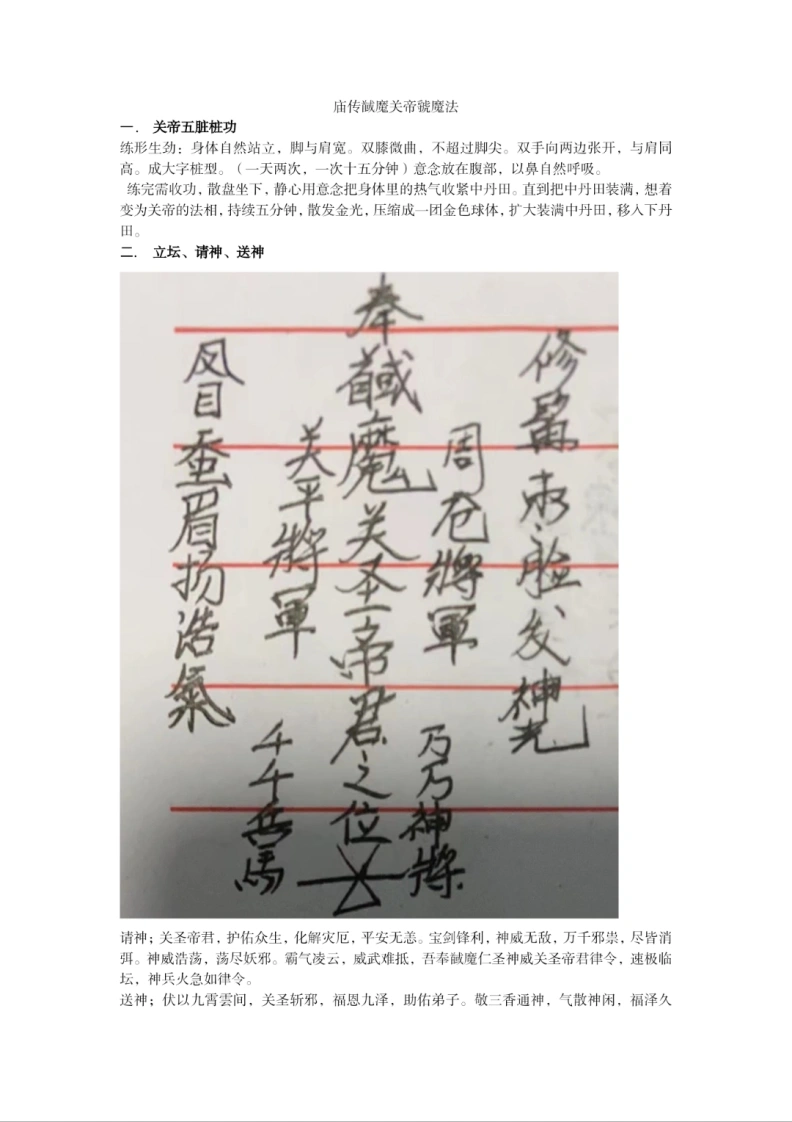 庙传馘魔关帝虢魔法
一． 关帝五脏桩功
练形生劲：身体自然站立，脚与肩宽。双膝微曲，不超过脚尖。双手向两边张开，与肩同
高。成大字桩型。（一天两次，一次十五分钟）意念放在腹部，以鼻自然呼吸。
练完需收功，散盘坐下，静心用意念把身体里的热气收紧中丹田。直到把中丹田装满，想着
变为关帝的法相，持续五分钟，散发金光，压缩成一团金色球体，扩大装满中丹田，移入下丹
田。
二． 立坛、请神、送神
修髯赤脸发神光
周仓將軍
万万神將
奉馘魔关圣帝君之位
关平將軍
千千兵馬
凤目蚕眉扬浩氣
请神；关圣帝君，护佑众生，化解灾厄，平安无恙。宝剑锋利，神威无敌，万千邪祟，尽皆消
弭。神威浩荡，荡尽妖邪。霸气凌云，威武难抵，吾奉馘魔仁圣神威关圣帝君律令，速极临
坛，神兵火急如律令。
送神；伏以九霄雲间，关圣斩邪，福恩九泽，助佑弟子。敬三香通神，气散神闲，福泽久